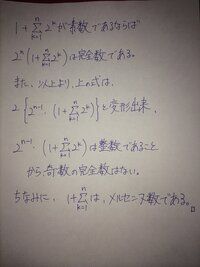 1+∑_{k=1}^{n} 2^k が素数であるならば
2^n (1+∑_{k=1}^{n} 2^k) は完全数である。
また、以上より、上の式は、
2{2^{n-1}・(1+∑_{k=1}^{n} 2^k)} と変形出来、
2^{n-1}・(1+∑_{k=1}^{n} 2^k) は整数であること
から、奇数の完全数はない。
ちなみに、1+∑_{k=1}^{n} は、メルセンヌ数である。